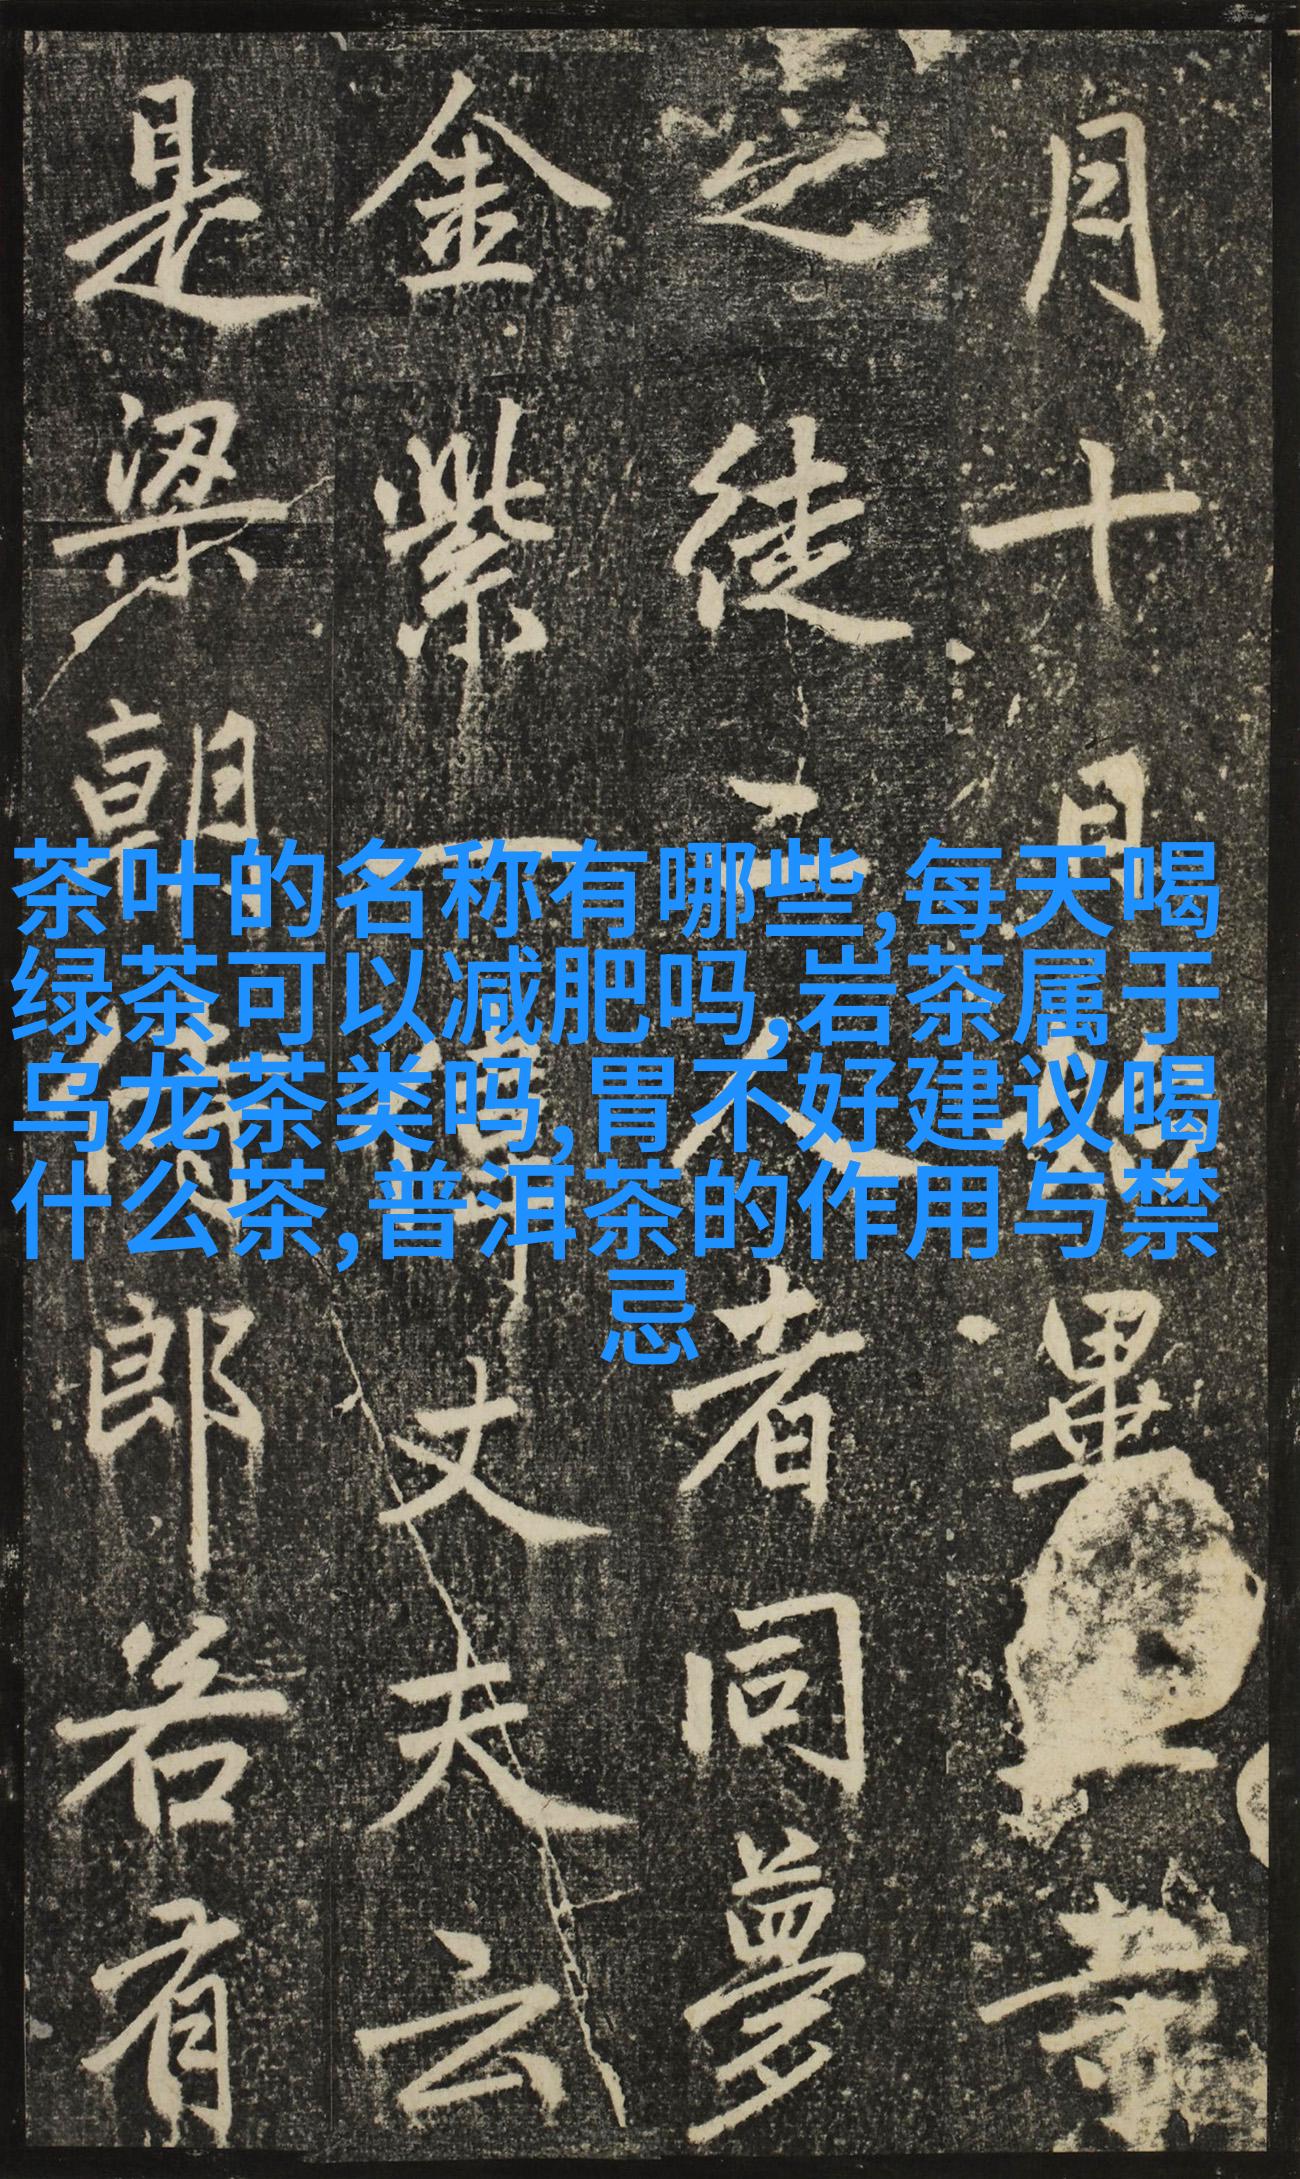 茶叶的名称有哪些,每天喝
绿茶可以减肥吗,岩茶属于
乌龙茶类吗,胃不好建议喝
什么茶,普洱茶的作用与禁
忌
月十月畢
之徒二人者同夢
金紫一丈夫云
是梁朝郎若有